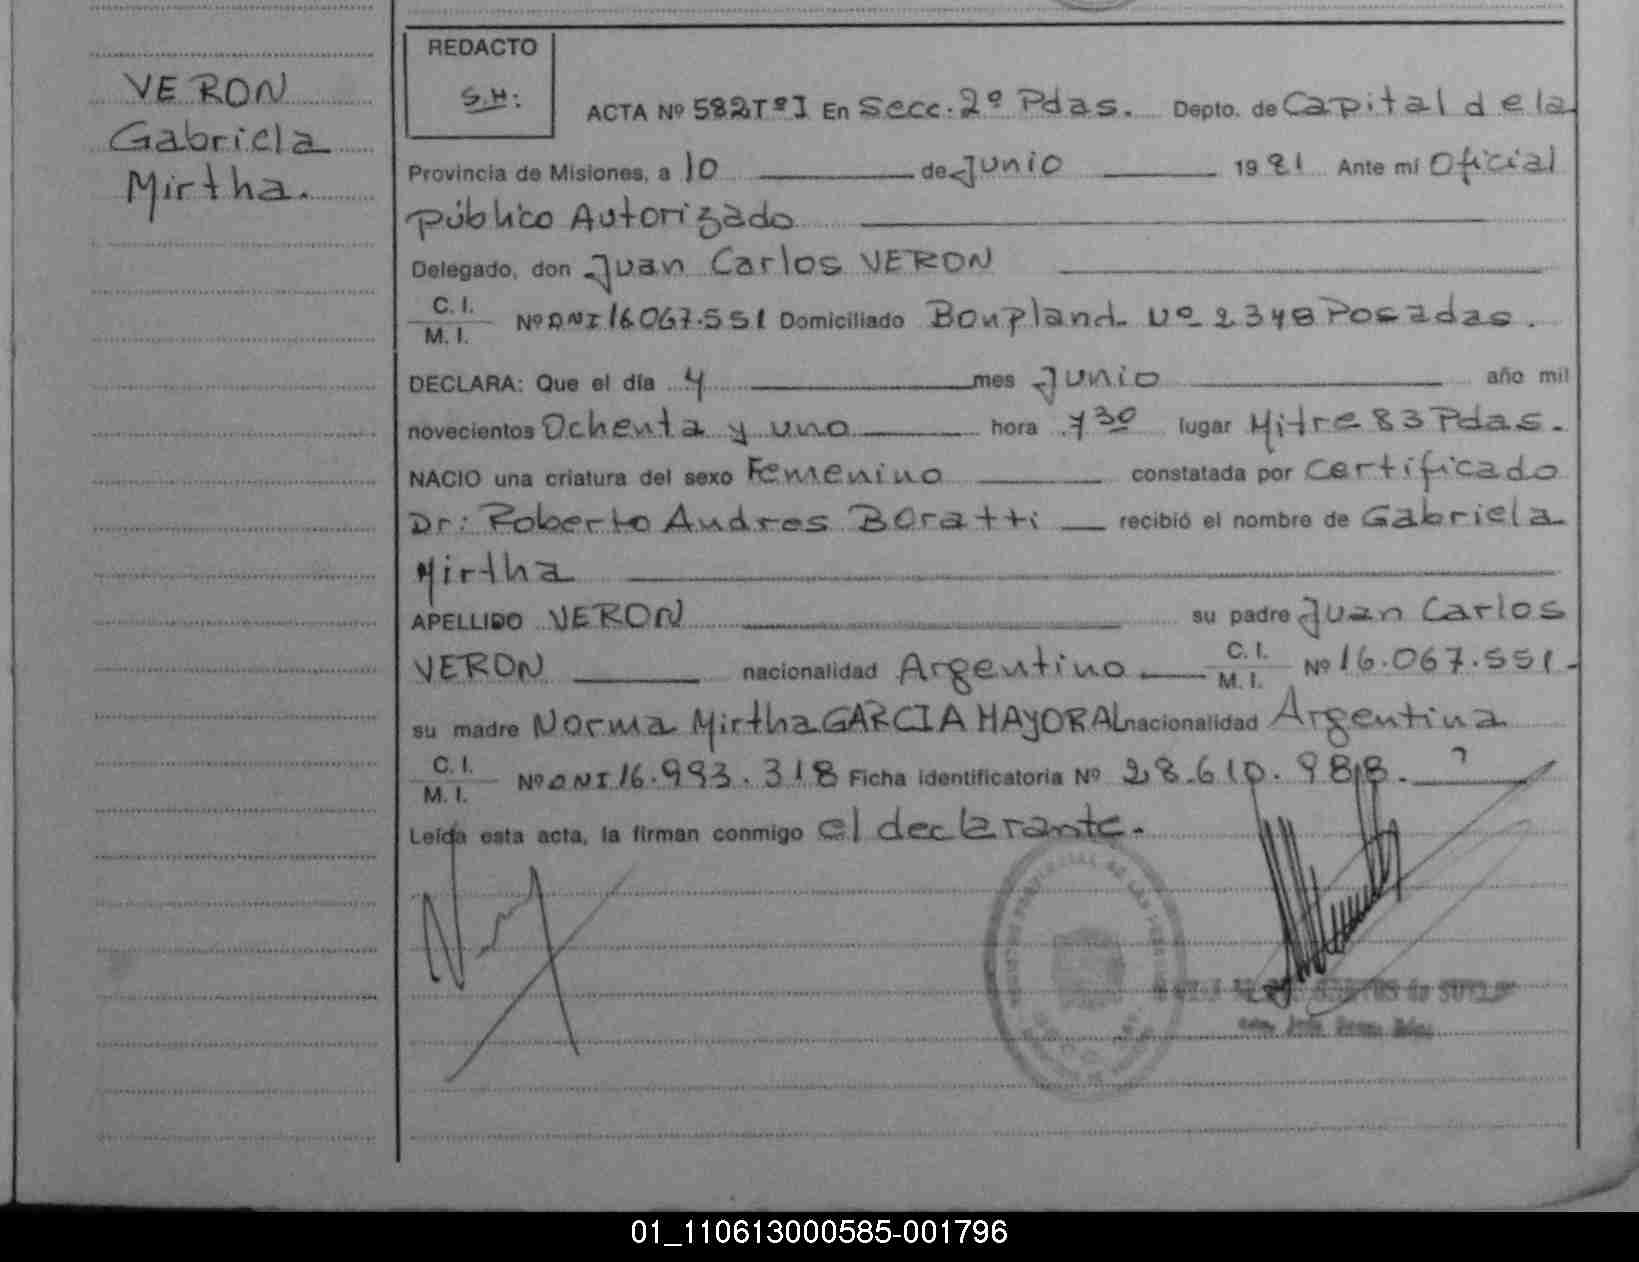 VERON
Gabriela
Mirtha.
REDACTO
S.H:
ACTA Nº 582 Tº I En Secc. 2º Pdas. Depto. de Capital de la
Provincia de Misiones, a 10 de Junio 1981 Ante mí Oficial
Público Autorizado
Delegado, don Juan Carlos VERON
C. I.
M. I. Nº DNI 16.067.551 Domiciliado Bonpland Nº 2348 Posadas.
DECLARA: Que el día 4 mes Junio año mil
novecientos Ochenta y uno hora 730 lugar Mitre 83 Pdas.
NACIO una criatura del sexo Femenino constatada por Certificado
Dr: Roberto Andres Boratti recibió el nombre de Gabriela
Mirtha
APELLIDO VERON su padre Juan Carlos
VERON nacionalidad Argentino C. I. M. I. Nº 16.067.551.
su madre Norma Mirtha GARCIA MAYORAL nacionalidad Argentina
C. I.
M. I. Nº DNI 16.993.318 Ficha Identificatoria Nº 28.610.988.
Leída esta acta, la firman conmigo el declarante.
01_110613000585-001796